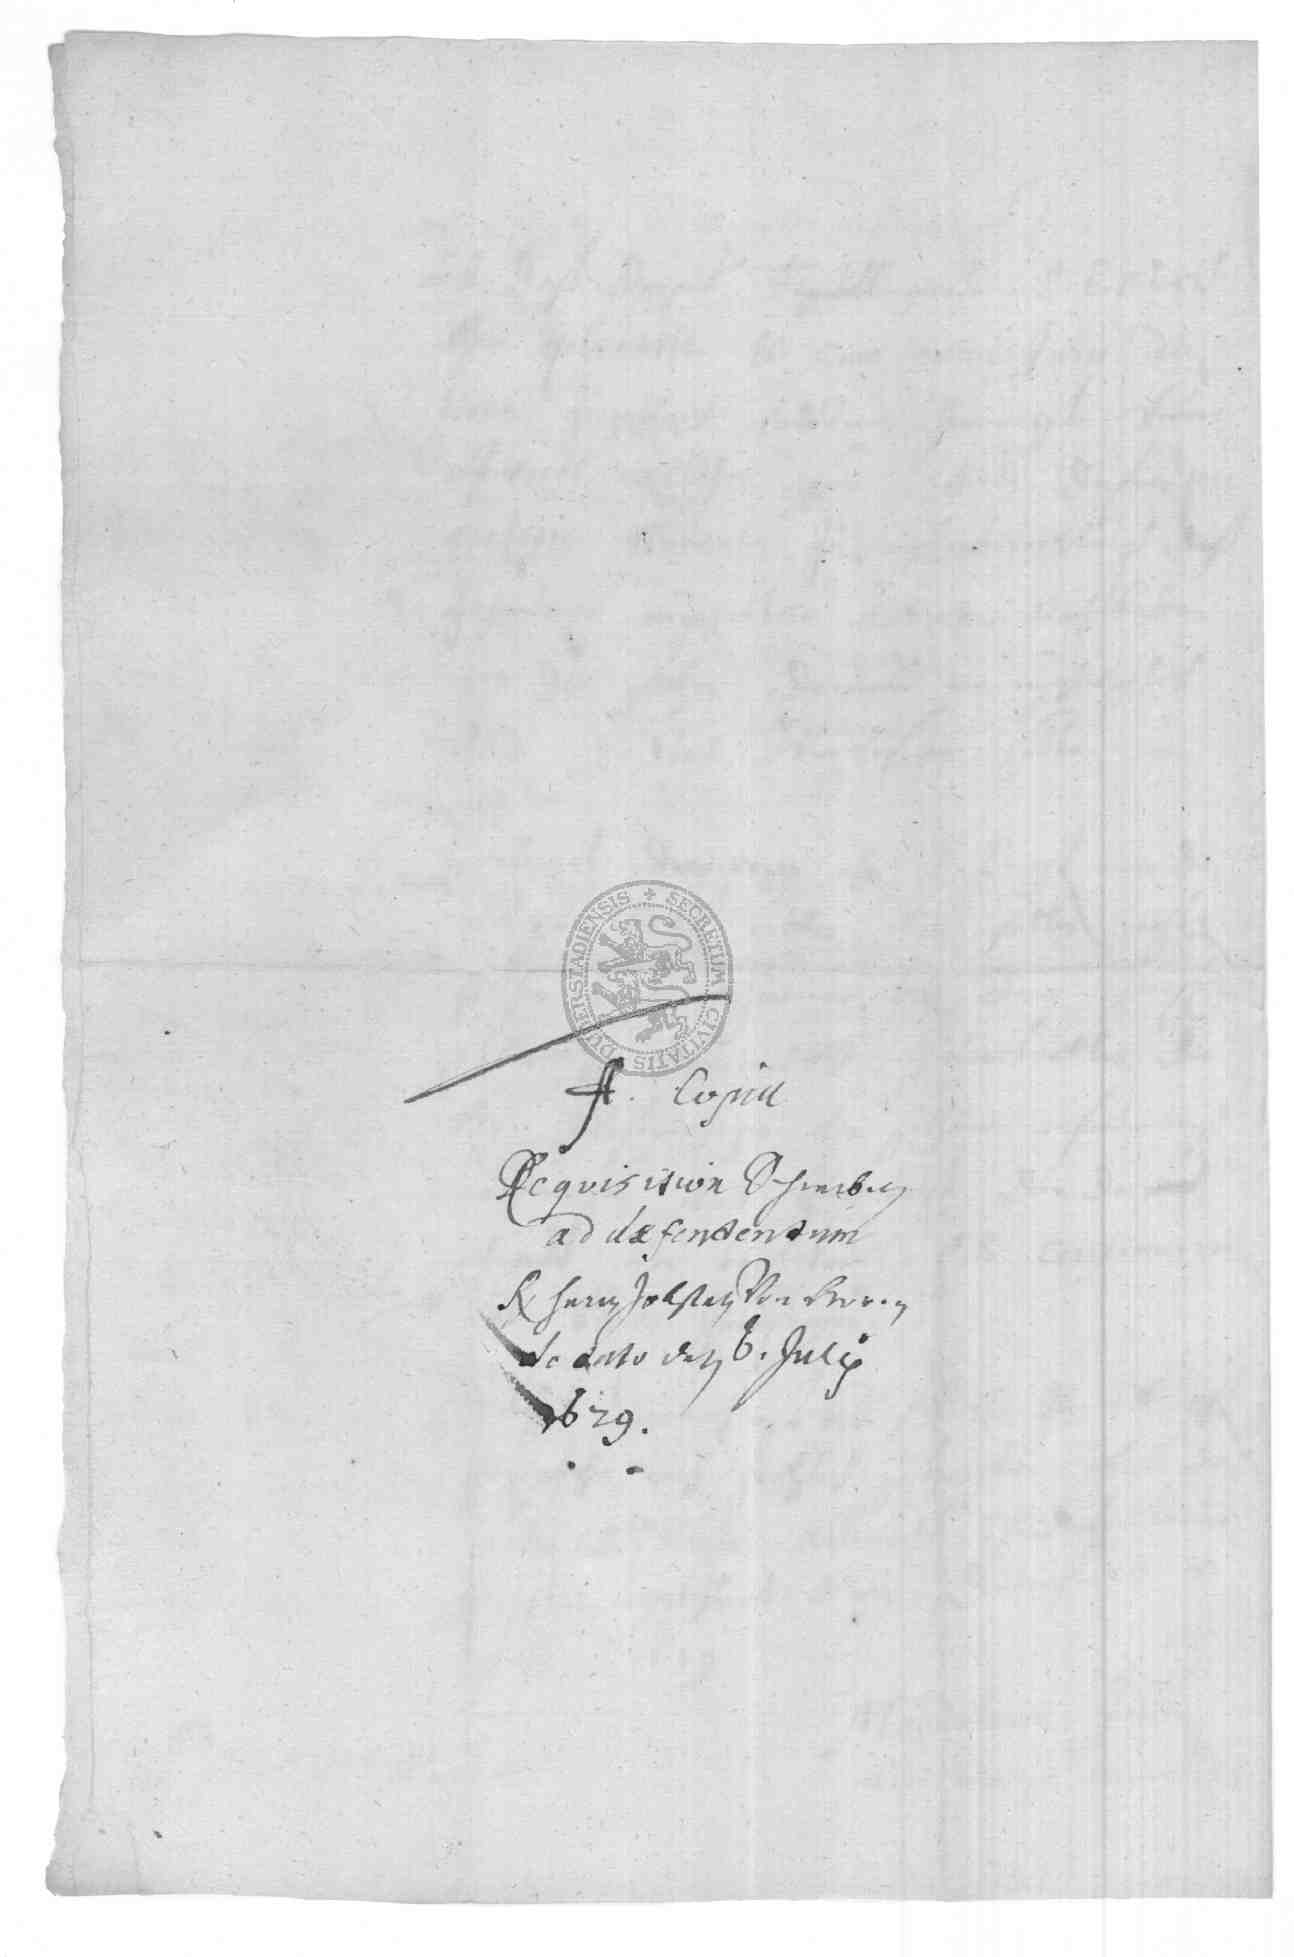 SECRETUM CIVITATIS DUDERSTADIENSIS
A. Copia
Requisition Schreiben
ad defendendum
H herrn Jobsten Von
de dato den 6. Julij
1629.